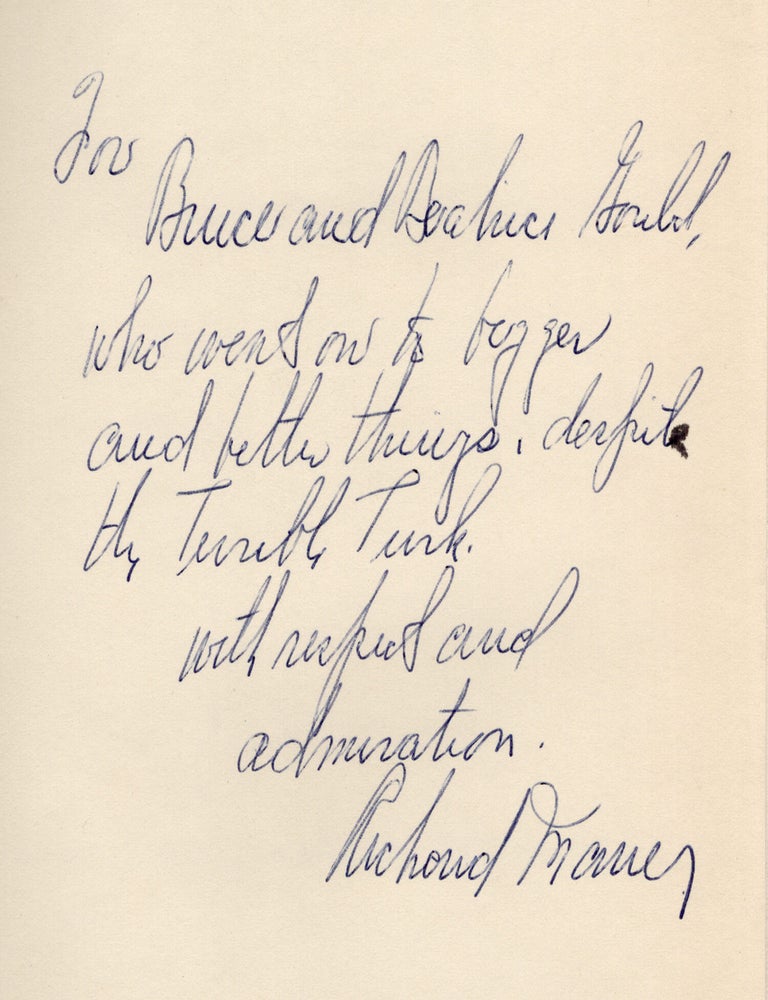 For
Bruce and Beatrice Gould,
who went on to bigger
and better things, despite
the Terrible Turk.
with respect and
admiration.
Richard Maney